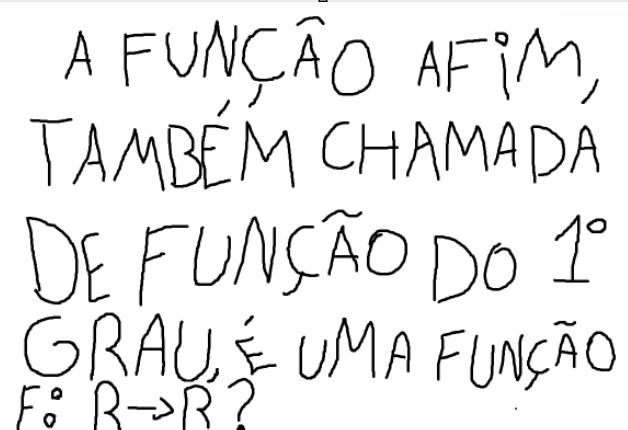 A FUNÇÃO AFIM,
TAMBÉM CHAMADA
DE FUNÇÃO DO 1º
GRAU, É UMA FUNÇÃO
F: R→R?